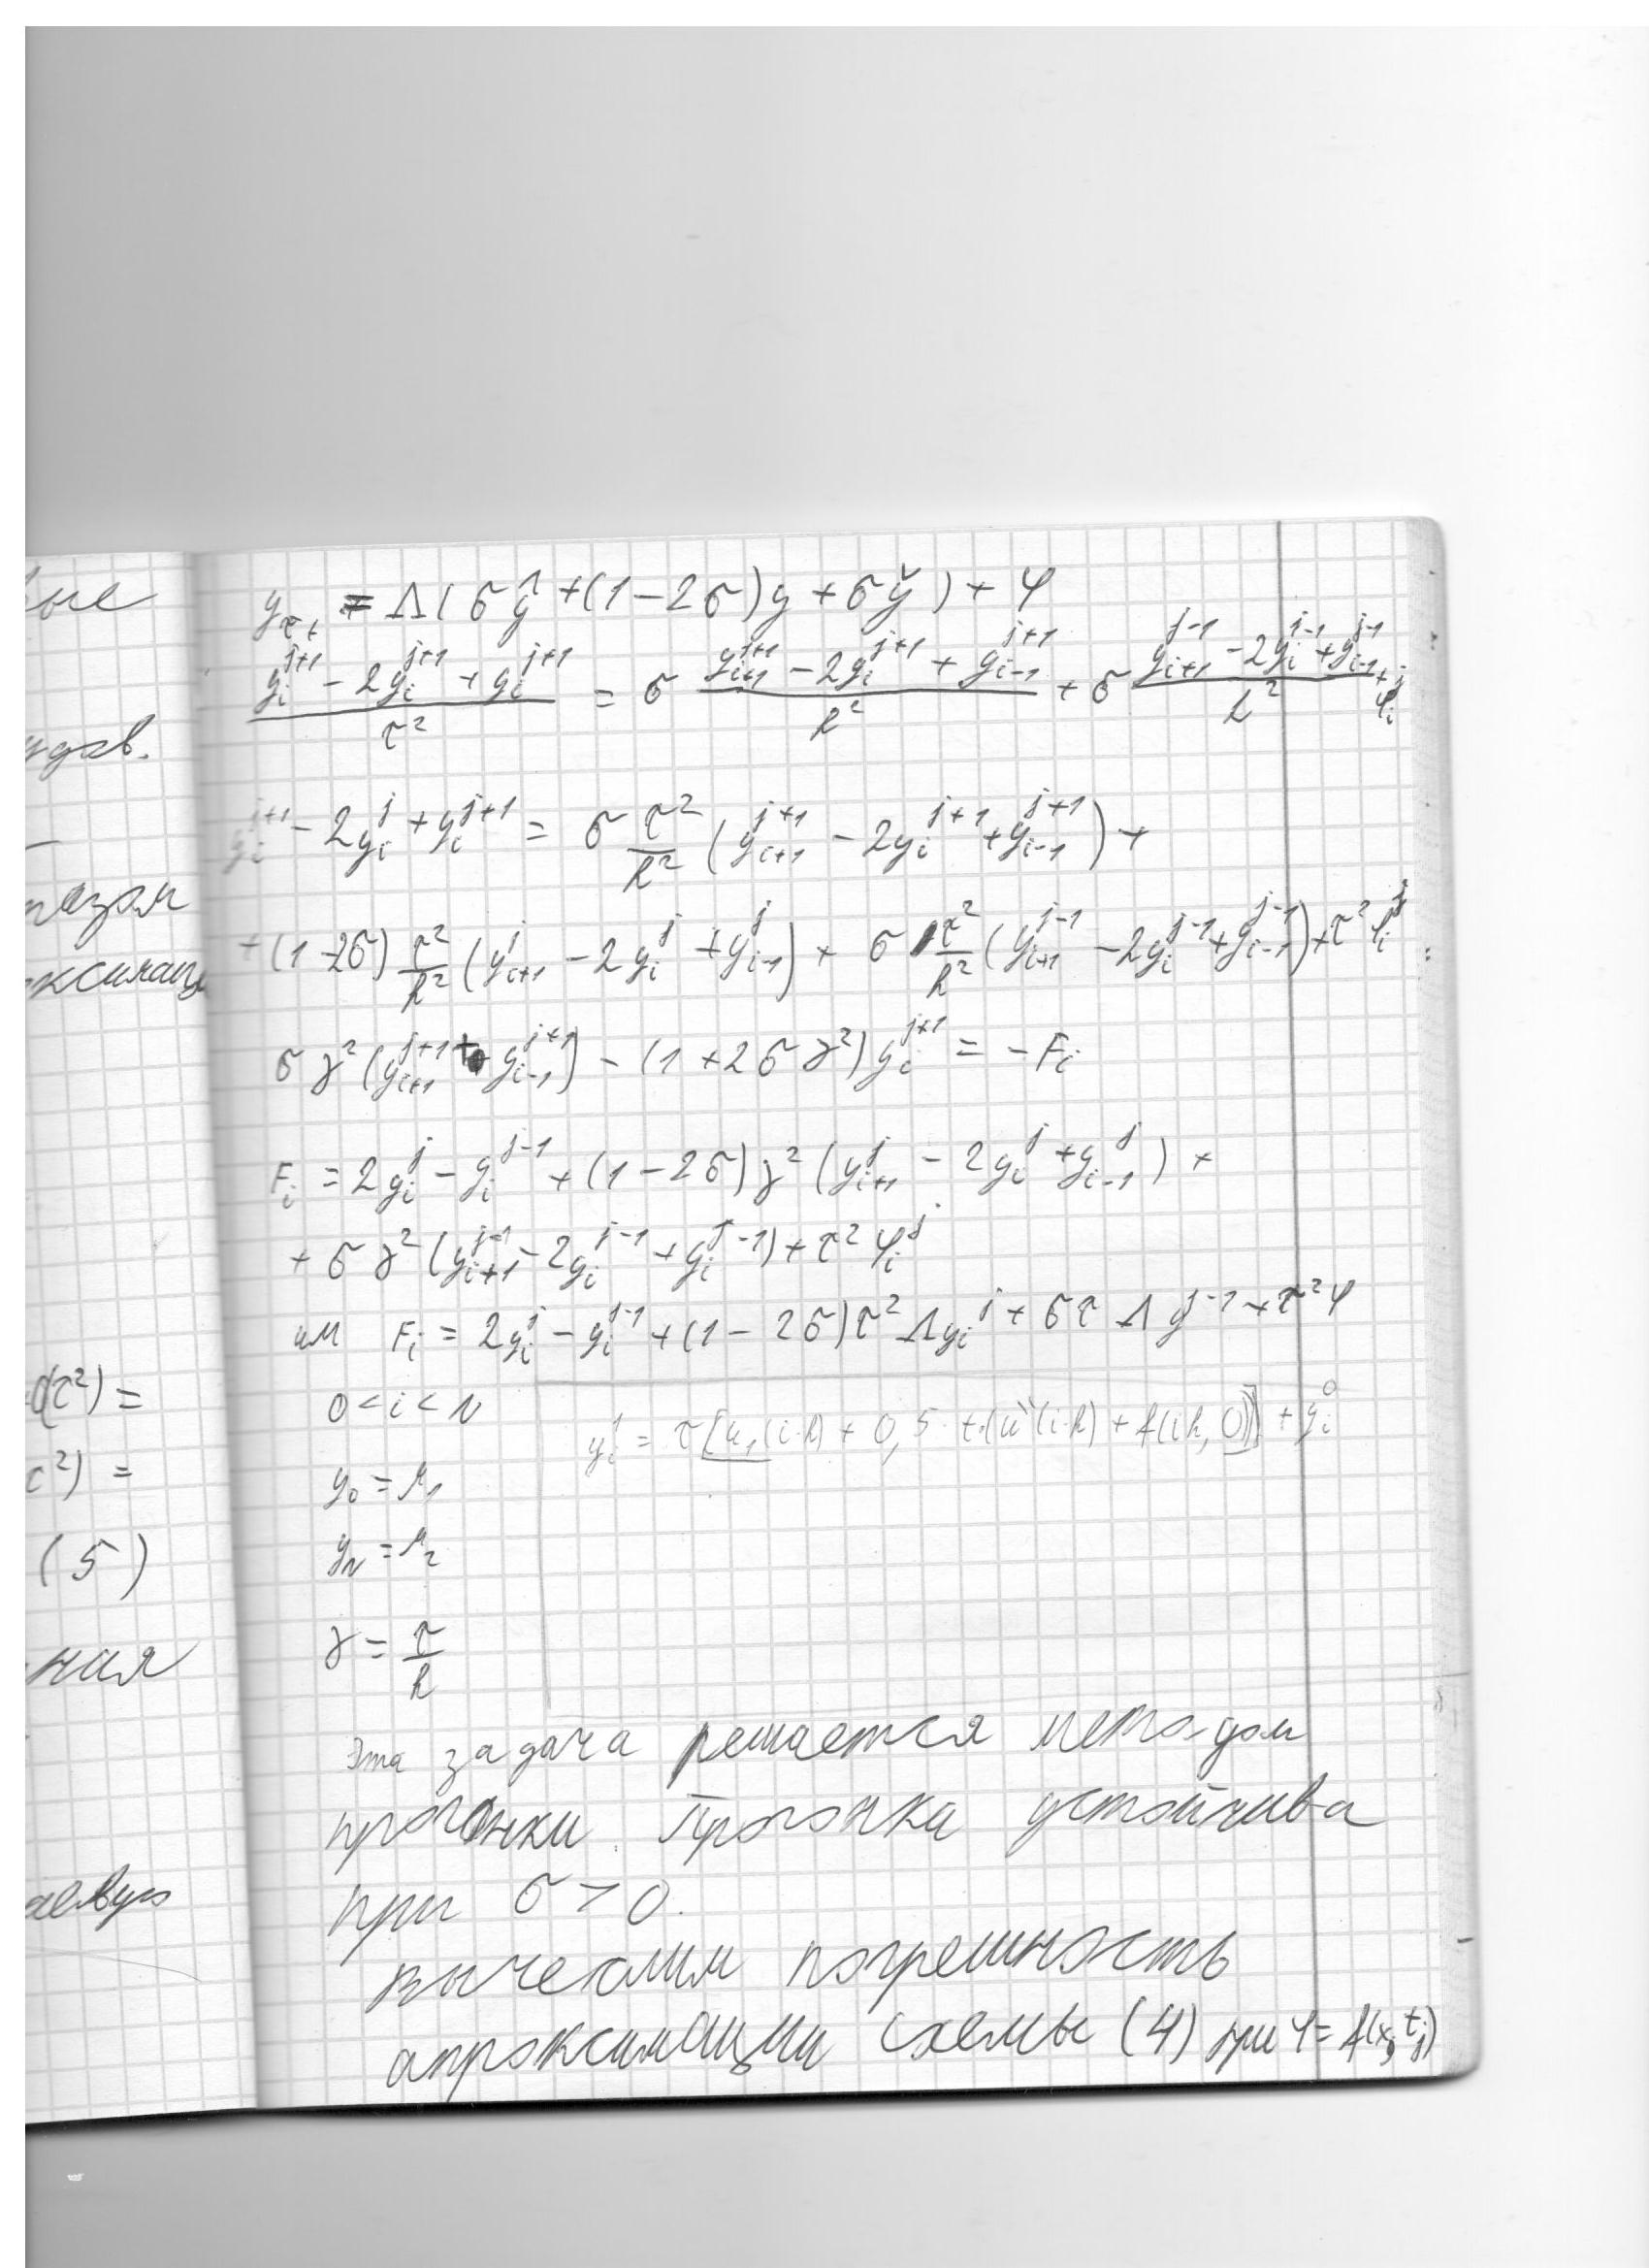 вые
удов.
образом
O(τ²) =
τ²) =
(5)
ния
y_{\bar{t}t} = Λ(σŷ + (1-2σ)y + σy̌) + φ
\frac{y_i^{j+1} - 2y_i^{j+1} + y_i^{j+1}}{τ²} = σ \frac{y_{i+1}^{j+1} - 2y_i^{j+1} + y_{i-1}^{j+1}}{h²} + σ \frac{y_{i+1}^{j-1} - 2y_i^{j-1} + y_{i-1}^{j-1}}{h²} + φ_i^j
y_i^{j+1} - 2y_i^j + y_i^{j+1} = σ \frac{τ²}{h²} (y_{i+1}^{j+1} - 2y_i^{j+1} + y_{i-1}^{j+1}) +
+ (1-2σ) \frac{τ²}{h²} (y_{i+1}^j - 2y_i^j + y_{i-1}^j) + σ \frac{τ²}{h²} (y_{i+1}^{j-1} - 2y_i^{j-1} + y_{i-1}^{j-1}) + τ² φ_i^j
σγ² (y_{i+1}^{j+1} + y_{i-1}^{j+1}) - (1 + 2σγ²) y_i^{j+1} = -F_i
F_i = 2y_i^j - y_i^{j-1} + (1-2σ)γ² (y_{i+1}^j - 2y_i^j + y_{i-1}^j) +
+ σγ² (y_{i+1}^{j-1} - 2y_i^{j-1} + y_i^{j-1}) + τ² φ_i^j
или F_i = 2y_i^j - y_i^{j-1} + (1-2σ)τ² Λy_i^j + στ Λy^{j-1} + τ²φ
0 < i < N
y_i^1 = τ[u_1(i·h) + 0,5·τ·(u''(i·h) + f(ih, 0))] + y_i^0
y_0 = μ_1
y_N = μ_2
γ = \frac{τ}{h}
Эта задача решается методом
прогонки. Прогонка устойчива
при σ > 0.
вычеслим погрешность
апроксимации схемы (4) при φ = f(x_i, t_j)